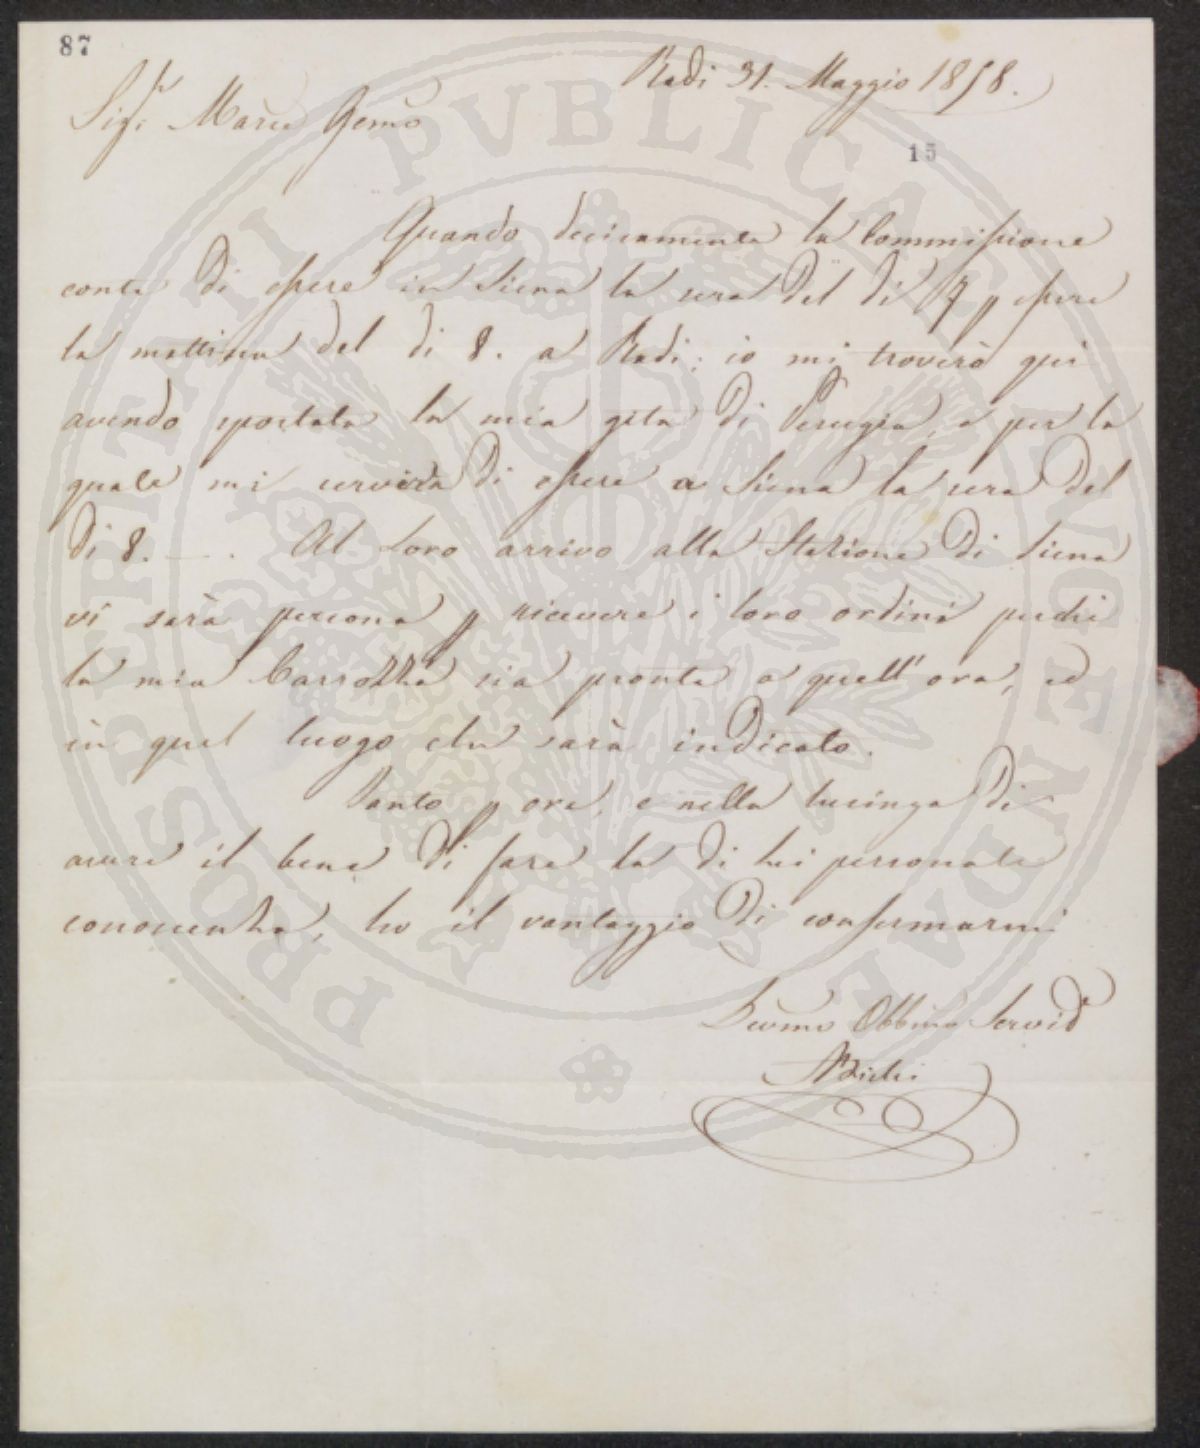 87
Radi 31. Maggio 1858.
Sig.r March. Gemo
15
Quando decisamente la Commissione
conta di essere in Siena la sera del dì 7 p essere
la mattina del dì 8. a Radi; io mi troverò qui
avendo spostata la mia gita di Perugia, e per la
quale mi servirà di essere a Siena la sera del
dì 8. — . Al Loro arrivo alla Stazione di Siena
vi sarà persona p ricevere i loro ordini perchè
la mia Carrozza sia pronta a quell'ora, ed
in quel luogo che sarà indicato.
Tanto p ora, e nella lusinga di
avere il bene di fare la di lei personale
conoscenza, ho il vantaggio di confermarmi
Devmo Obbmo Servid.e
ABichi
PROSPERITATI PVBLICAE AVGENDAE